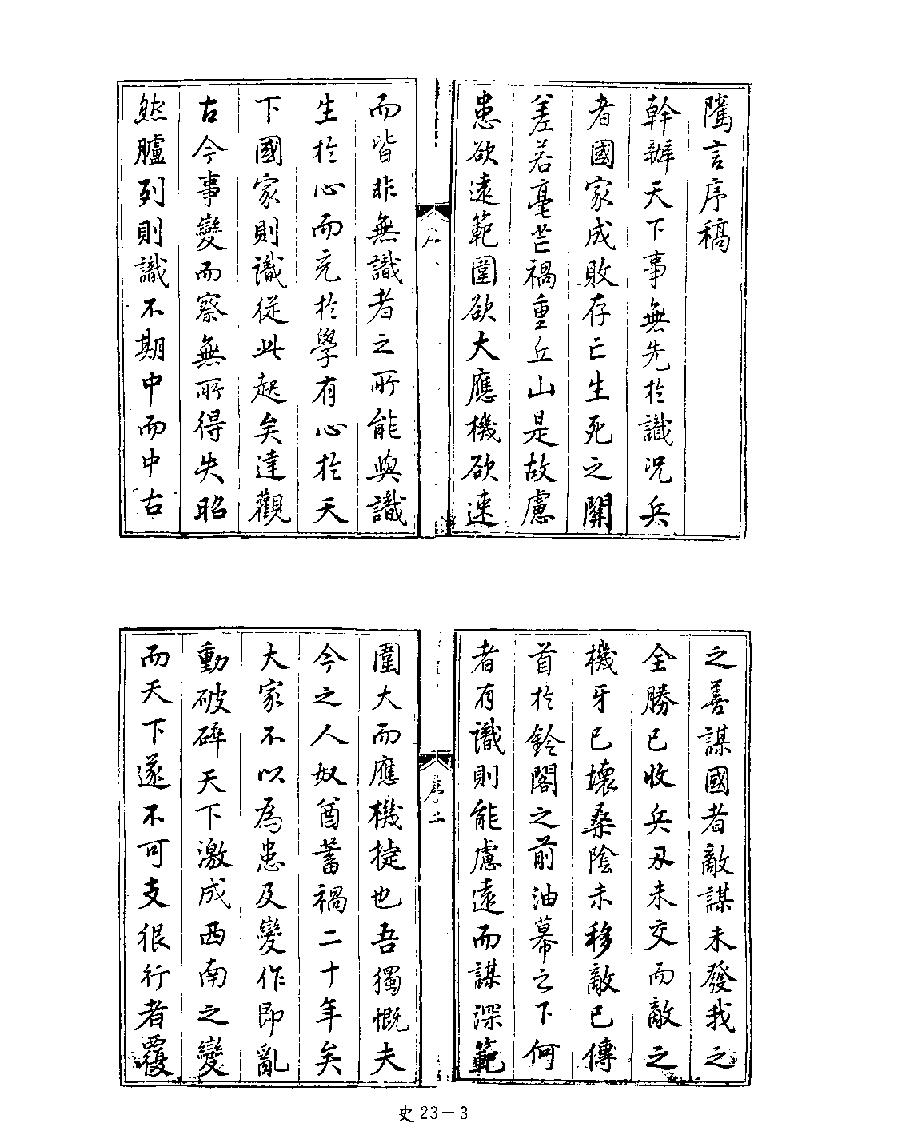 隲言序稿
幹辦天下事無先於識况兵
者國家成敗存亡生死之關
差若毫芒禍重丘山是故慮
患欲遠範圍欲大應機欲速
而皆非無識者之所能與識
生於心而充於學有心於天
下國家則識從此起矣達觀
古今事變而察無所得失昭
然臚列則識不期中而中古
之善謀國者敵謀未發我之
全勝已收兵刃未交而敵之
機牙已壞桑陰未移敵已傳
首於鈴閣之前油幕之下何
者有識則能慮遠而謀深範
序二
圍大而應機捷也吾獨慨夫
今之人奴酋蓄禍二十年矣
大家不以為患及變作即亂
動破碎天下激成西南之變
而天下遂不可支很行者覆
史23-3